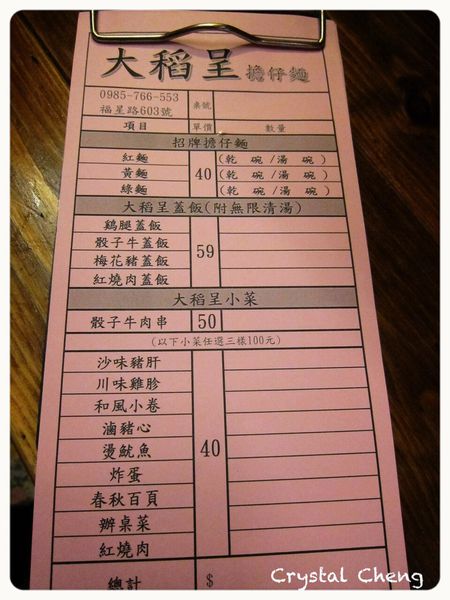 大稻呈 擔仔麵
0985-766-553
福星路603號
桌號
項目 單價 數量
招牌擔仔麵
紅麵 (乾 碗/湯 碗)
黃麵 40 (乾 碗/湯 碗)
綠麵 (乾 碗/湯 碗)
大稻呈蓋飯(附無限清湯)
鷄腿蓋飯
骰子牛蓋飯
59
梅花豬蓋飯
紅燒肉蓋飯
大稻呈小菜
骰子牛肉串 50
(以下小菜任選三樣100元)
沙味豬肝
川味雞胗
和風小卷
滷豬心
燙魷魚 40
炸蛋
春秋百頁
辦桌菜
紅燒肉
總計 $
Crystal Cheng